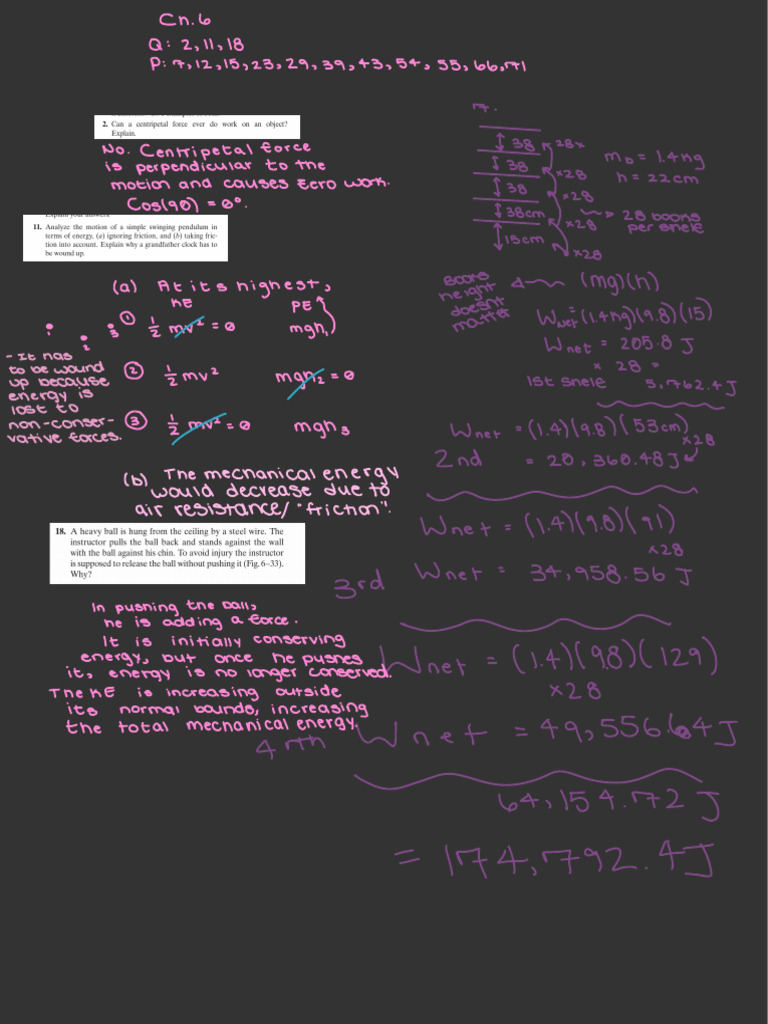 Ch. 6
Q: 2, 11, 18
P: 7, 12, 15, 23, 29, 39, 43, 54, 55, 66, 71
2. Can a centripetal force ever do work on an object?
Explain.
No. Centripetal force
is perpendicular to the
motion and causes zero work.
Cos(90) = 0°.
Explain your answers.
11. Analyze the motion of a simple swinging pendulum in
terms of energy, (a) ignoring friction, and (b) taking fric-
tion into account. Explain why a grandfather clock has to
be wound up.
(a) At its highest,
KE PE
① 1/2 mv² = 0 mgh₁
1 2 3
② 1/2 mv² mgh₂ = 0
③ 1/2 mv² = 0 mgh₃
- It has
to be wound
up because
energy is
lost to
non-conser-
vative forces.
(b) The mechanical energy
would decrease due to
air resistance/ "friction".
18. A heavy ball is hung from the ceiling by a steel wire. The
instructor pulls the ball back and stands against the wall
with the ball against his chin. To avoid injury the instructor
is supposed to release the ball without pushing it (Fig. 6–33).
Why?
In pushing the ball,
he is adding a force.
It is initially conserving
energy, but once he pushes
it, energy is no longer conserved.
The KE is increasing outside
its normal bounds, increasing
the total mechanical energy.
7.
38 28x
38 x28
38 x28
38cm x28
15cm x28
m_b = 1.4kg
h = 22cm
28 books
per shelf
books
height
doesnt
matter
(mg)(h)
W_net = (1.4kg)(9.8)(15)
W_net = 205.8 J
x 28 =
1st shelf 5,762.4 J
W_net = (1.4)(9.8)(53cm)
x28
2nd = 20,360.48 J
W_net = (1.4)(9.8)(91)
x28
3rd W_net = 34,958.56 J
W_net = (1.4)(9.8)(129)
x28
4rth W_net = 49,556.64 J
64,154.72 J
= 174,792.4 J